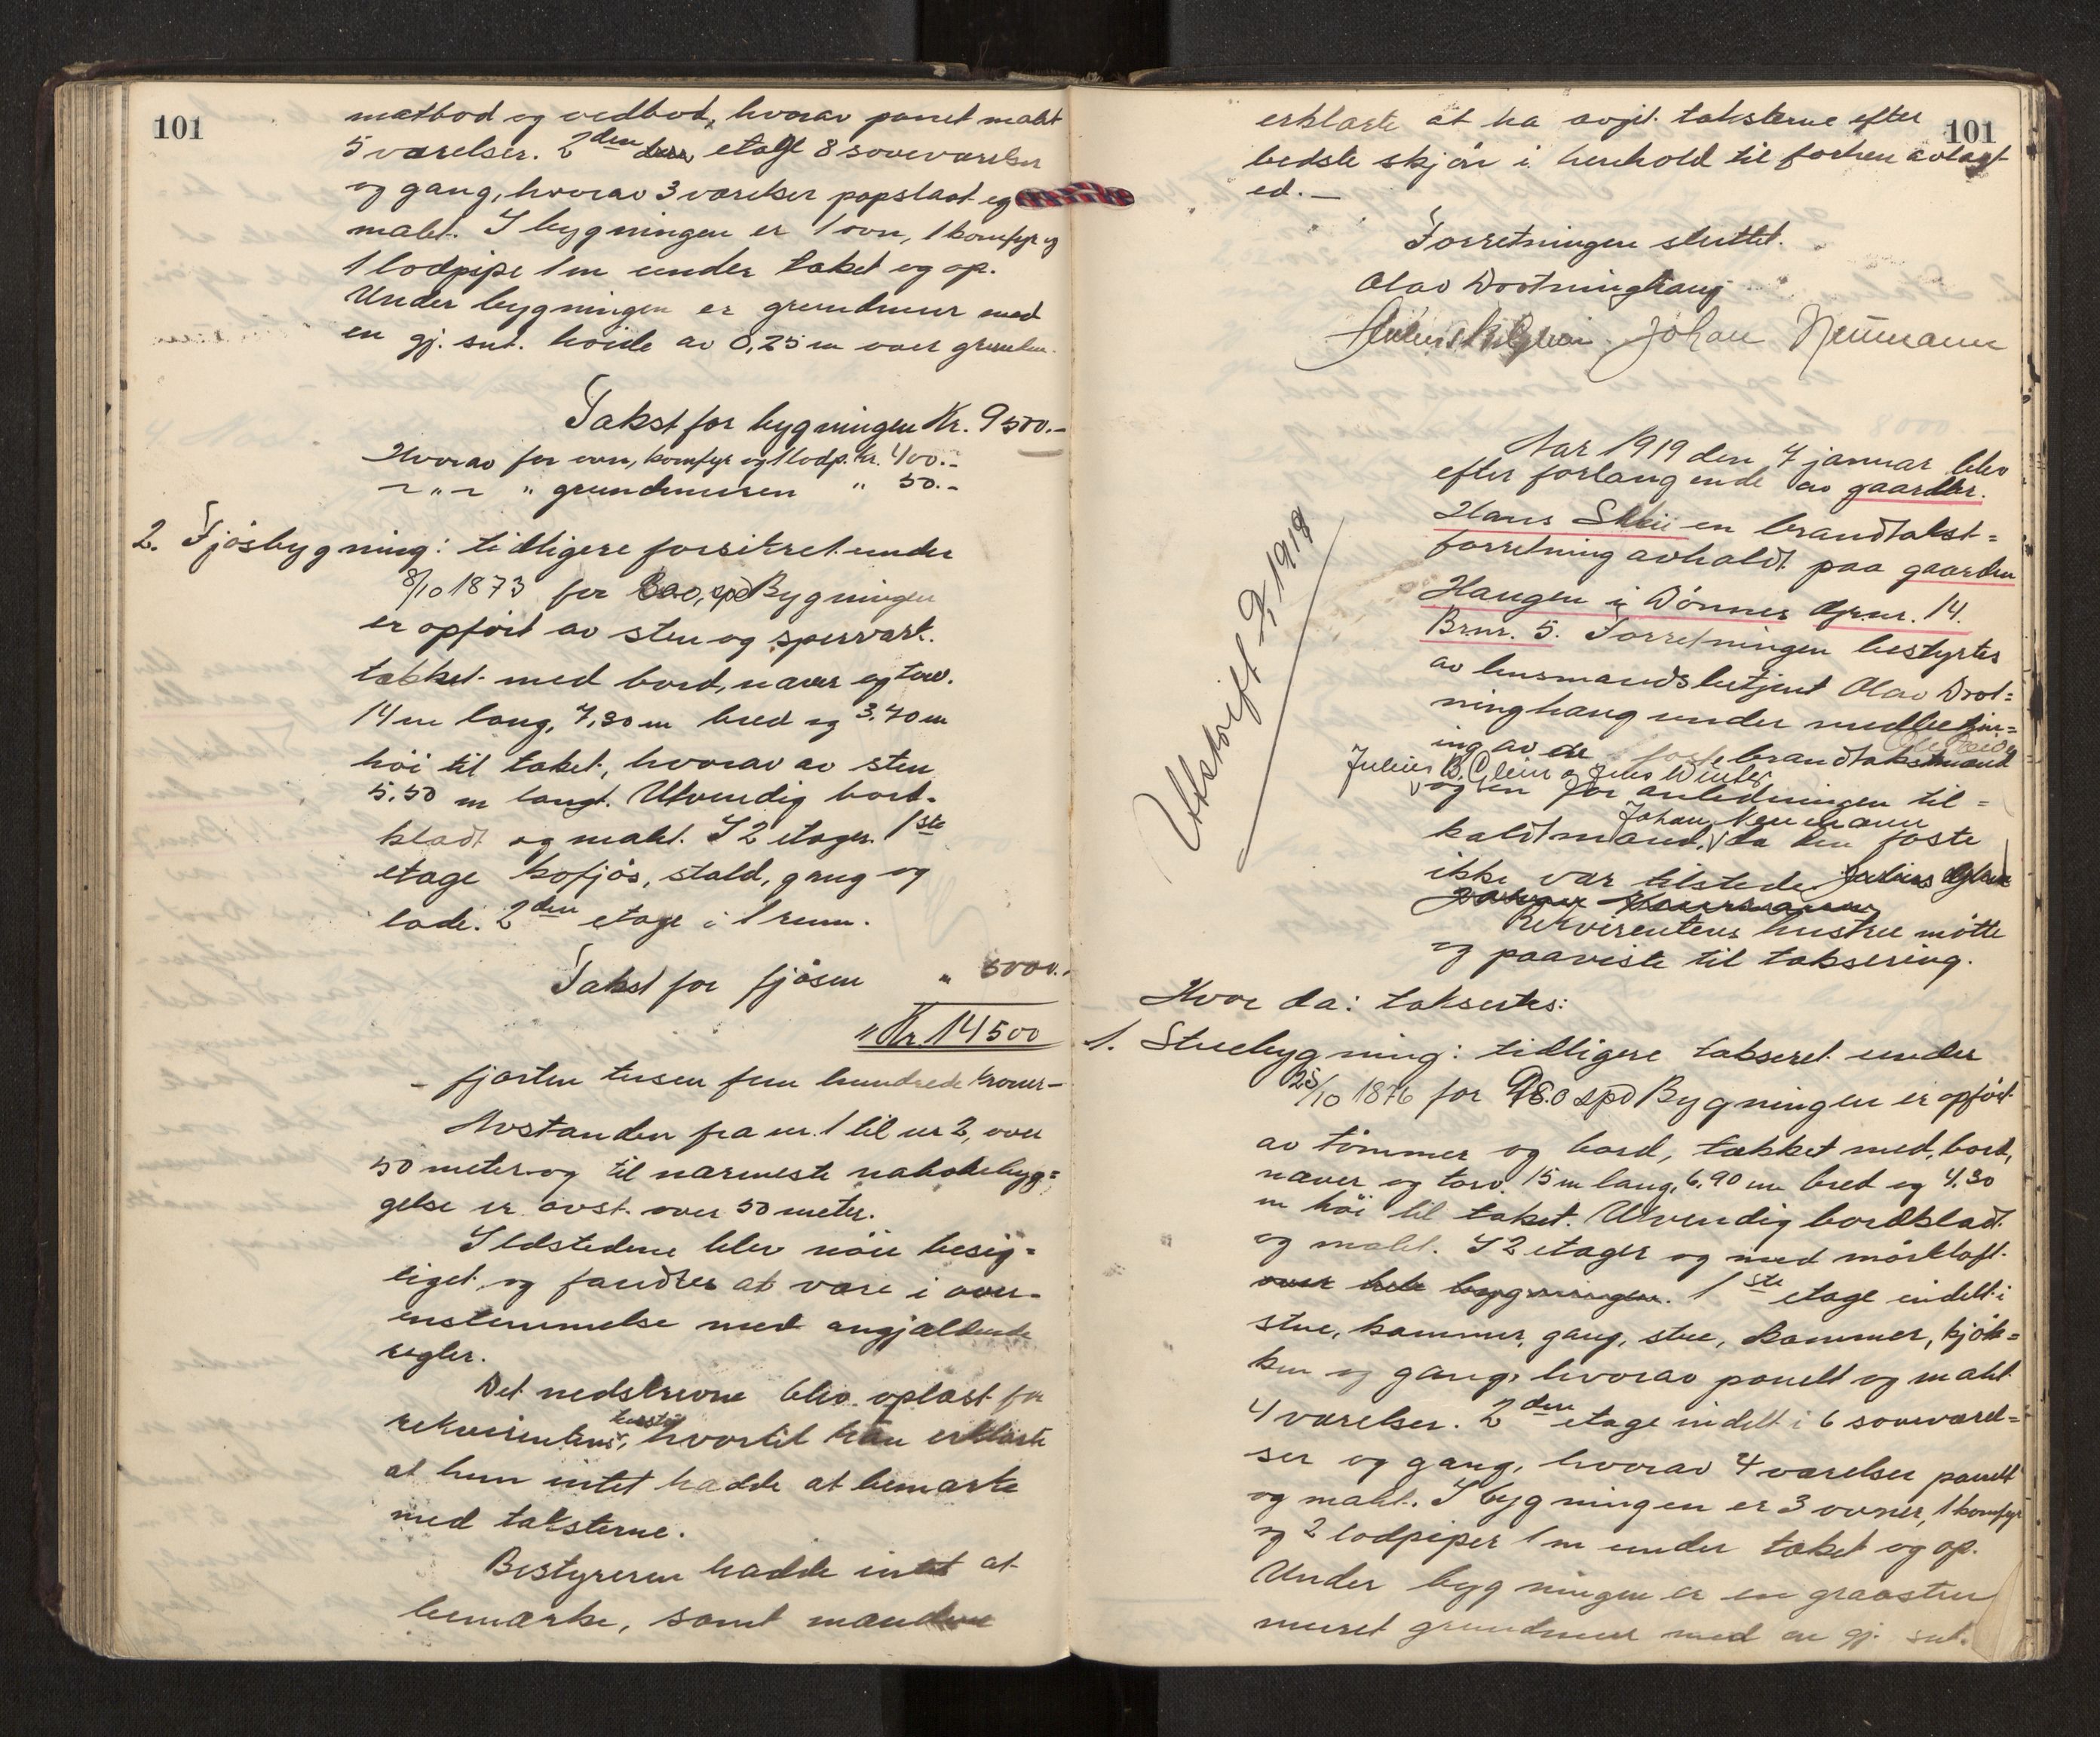 101
matbod og vedbod, hvorav panet malt
5 værelser. 2den etage 8 soveværelser
og gang, hvorav 3 værelser papslaat og
malt. I bygningen er 1 ovn, 1 komfyr og
1 lodpipe 1 m under taket og op.
Under bygningen er grundmur med
en gj. snt. høide av 0,25 m over grunden.
Takst for bygningen Kr. 9500.-
Hvorav for ovn, komfyr og 1 lodp. Kr. 400.-
~ " ~ " grundmuren " 50.-
2. Fjøsbygning: tidligere forsikret under
8/10 1873 for spd Bygningen
er opført av sten og sperværk.
tækket med bord, næver og torv.
14 m lang, 7,30 m bred og 3,70 m
høi til taket, hvorav av sten
5,50 m langt. Utvendig bord-
klædt og malt. I 2 etager. 1ste
etage kofjøs, stald, gang og
lade. 2den etage i 1 rum.
Takst for fjøsen " 5000.-
" Kr. 14500
- fjorten tusen fem hundrede kroner -
Avstanden fra nr. 1 til nr 2, over
50 meter og til nærmeste nabobebyg=
gelse er avst. over 50 meter.
Ildstedene blev nøie besig=
tiget og fandtes at være i over-
ensstemmelse med angjældende
regler.
Det nedskrevne blev oplæst for
rekvirentens hustru, hvortil hun erklærte
at hun intet hadde at bemærke
med taksterne.
Bestyreren hadde intet at
bemærke, samt mændene
101
erklærte at ha avgit taksterne efter
bedste skjøn i henhold til forhen avlagt
ed. —
Forretningen sluttet.
Olav Drotninghaug
Johan Neumann
Utskrift 9/1 1919
Aar 1919 den 7 januar blev
efter forlangende av gaardbr.
Hans Skei en brandtakst=
forretning avholdt paa gaarden
Haugen i Dønnes Gr.nr. 14.
Brnr. 5. Forretningen bestyrtes
av lensmandsbetjent Olav Drot=
ninghaug under medbetjen=
ing av de faste brandtakstmænd
Julius B. Glein og Jens Winter
og en for anledningen til=
Johan Neumann
kaldt mand, da den faste
ikke var tilstede. Julius Glein
Johan Neumann
Rekvirentens hustru møtte
og paaviste til taksering.
Hvor da: taksertes:
1. Stuebygning: tidligere takseret under
28/10 1876 for 980 spd Bygningen er opført
av tømmer og bord, tækket med, bord,
næver og torv. 15 m lang, 6,90 m bred og 4,30
m høi til taket. Utvendig bordklædt
og malt. I 2 etager og med mørkloft
over hele bygningen. 1ste etage indelt i
stue, kammer, gang, stue, kammer, kjøk=
ken og gang, hvorav panelt og malt
4 værelser. 2den etage indelt i 6 soveværel=
ser og gang, hvorav 4 værelser panelt
og malt. I bygningen er 3 ovner, 1 komfyr
og 2 lodpiper 1 m under taket og op.
Under bygningen er en graasten
muret grundmur med en gj. snt.